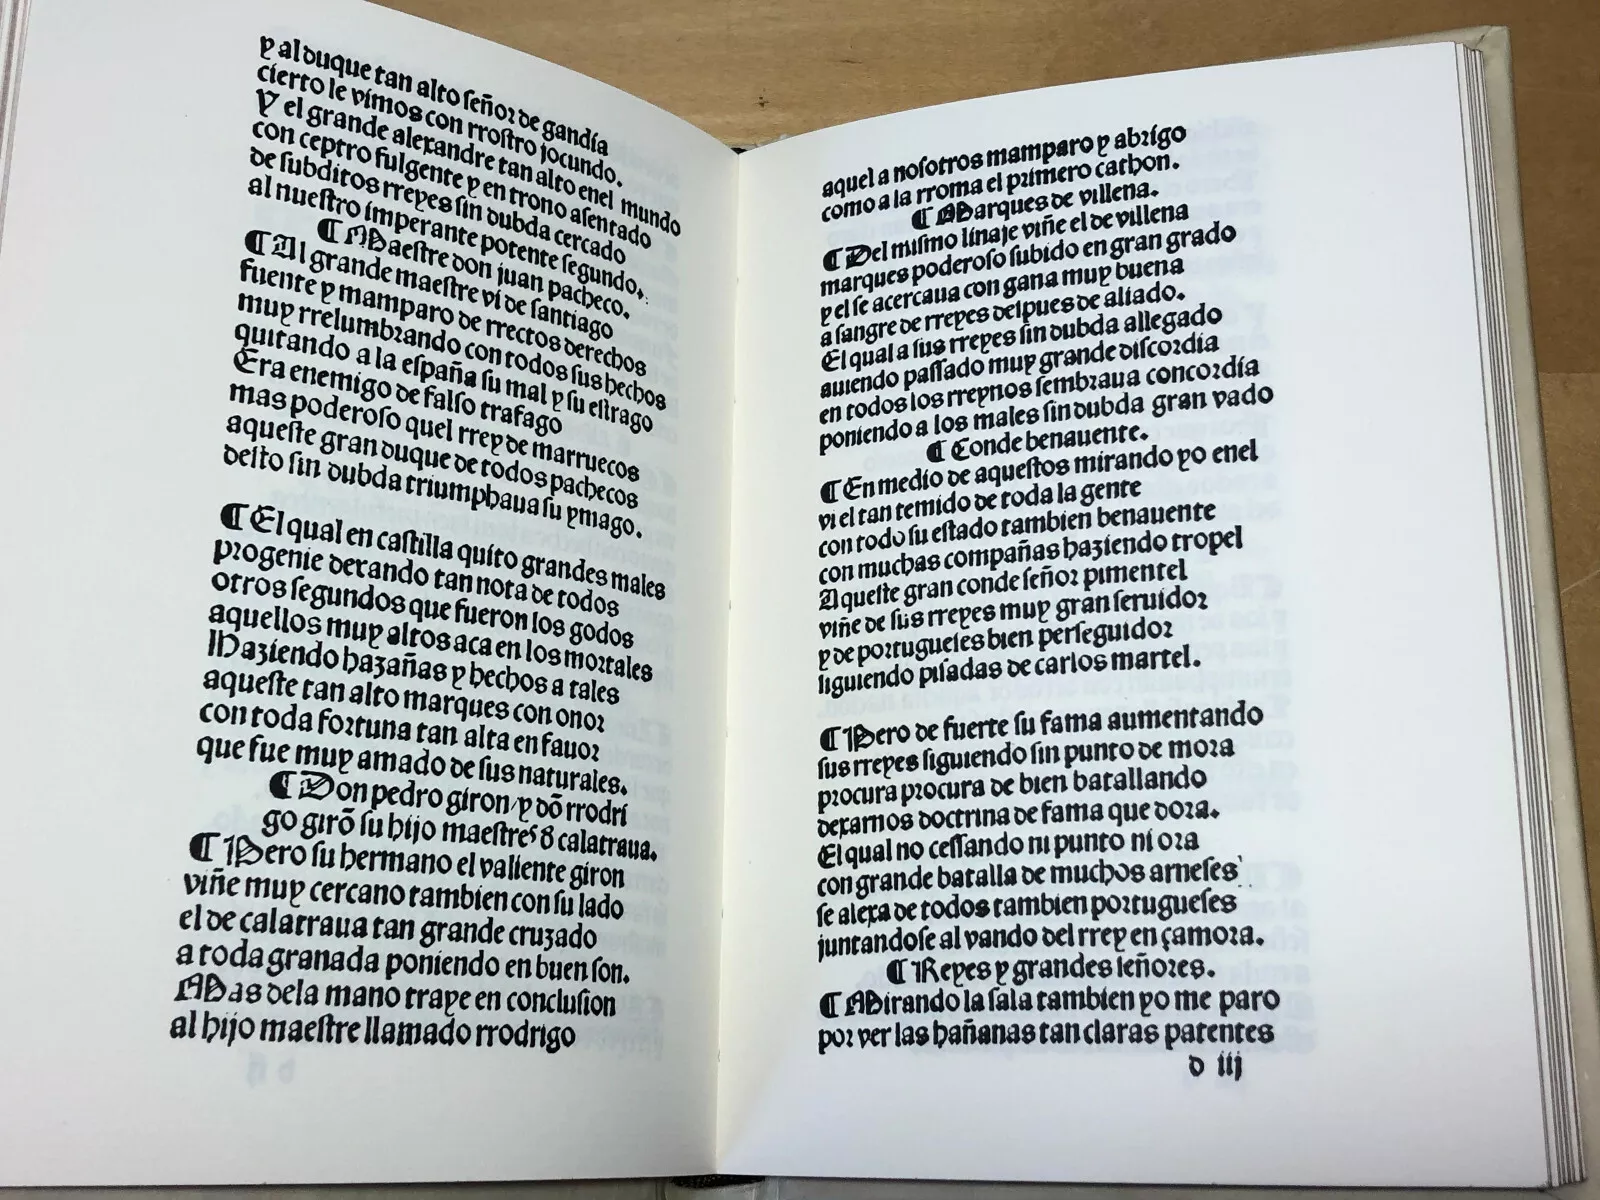 y al duque tan alto señor de gandía
cierto le vimos con rrostro jocundo.
Y el grande alexandre tan alto enel mundo
con ceptro fulgente y en trono asentado
de subditos rreyes sin dubda cercado
al nuestro imperante potente segundo.
¶ Maestre don juan pacheco.
¶ Al grande maestre vi de santiago
fuente y mamparo de rrectos derechos
muy rrelumbrando con todos sus hechos
quitando a la españa su mal y su estrago
Era enemigo de falso trafago
mas poderoso quel rrey de marruecos
aqueste gran duque de todos pachecos
desto sin dubda triumphaua su ymago.
¶ El qual en castilla quito grandes males
progenie dexando tan nota de todos
otros segundos que fueron los godos
aquellos muy altos aca en los mortales
Haziendo hazañas y hechos a tales
aqueste tan alto marques con onor
con toda fortuna tan alta en fauor
que fue muy amado de sus naturales.
¶ Don pedro giron/y dõ rrodri
go girõ su hijo maestres δ calatraua.
¶ Pero su hermano el valiente giron
viñe muy cercano tambien con su lado
el de calatraua tan grande cruzado
a toda granada poniendo en buen son.
Mas dela mano traye en conclusion
al hijo maestre llamado rrodrigo
aquel a nosotros mamparo y abrigo
como a la rroma el primero cathon.
¶ Marques de villena.
¶ Del mismo linaje viñe el de villena
marques poderoso subido en gran grado
y el se acercaua con gana muy buena
a sangre de rreyes despues de aliado.
El qual a sus rreyes sin dubda allegado
auiendo passado muy grande discordia
en todos los rreynos sembraua concordia
poniendo a los males sin dubda gran vado
¶ Conde benauente.
¶ En medio de aquestos mirando yo enel
vi el tan temido de toda la gente
con todo su estado tambien benauente
con muchas compañas haziendo tropel
Aqueste gran conde señor pimentel
viñe de sus rreyes muy gran seruidor
y de portugueses bien perseguidor
siguiendo pisadas de carlos martel.
¶ Pero de fuerte su fama aumentando
sus rreyes siguiendo sin punto de mora
procura procura de bien batallando
dexarnos doctrina de fama que dora.
El qual no cessando ni punto ni ora
con grande batalla de muchos arneses
se alexa de todos tambien portugueses
juntandose al vando del rrey en çamora.
¶ Reyes y grandes señores.
¶ Mirando la sala tambien yo me paro
por ver las hañanas tan claras patentes
d iij